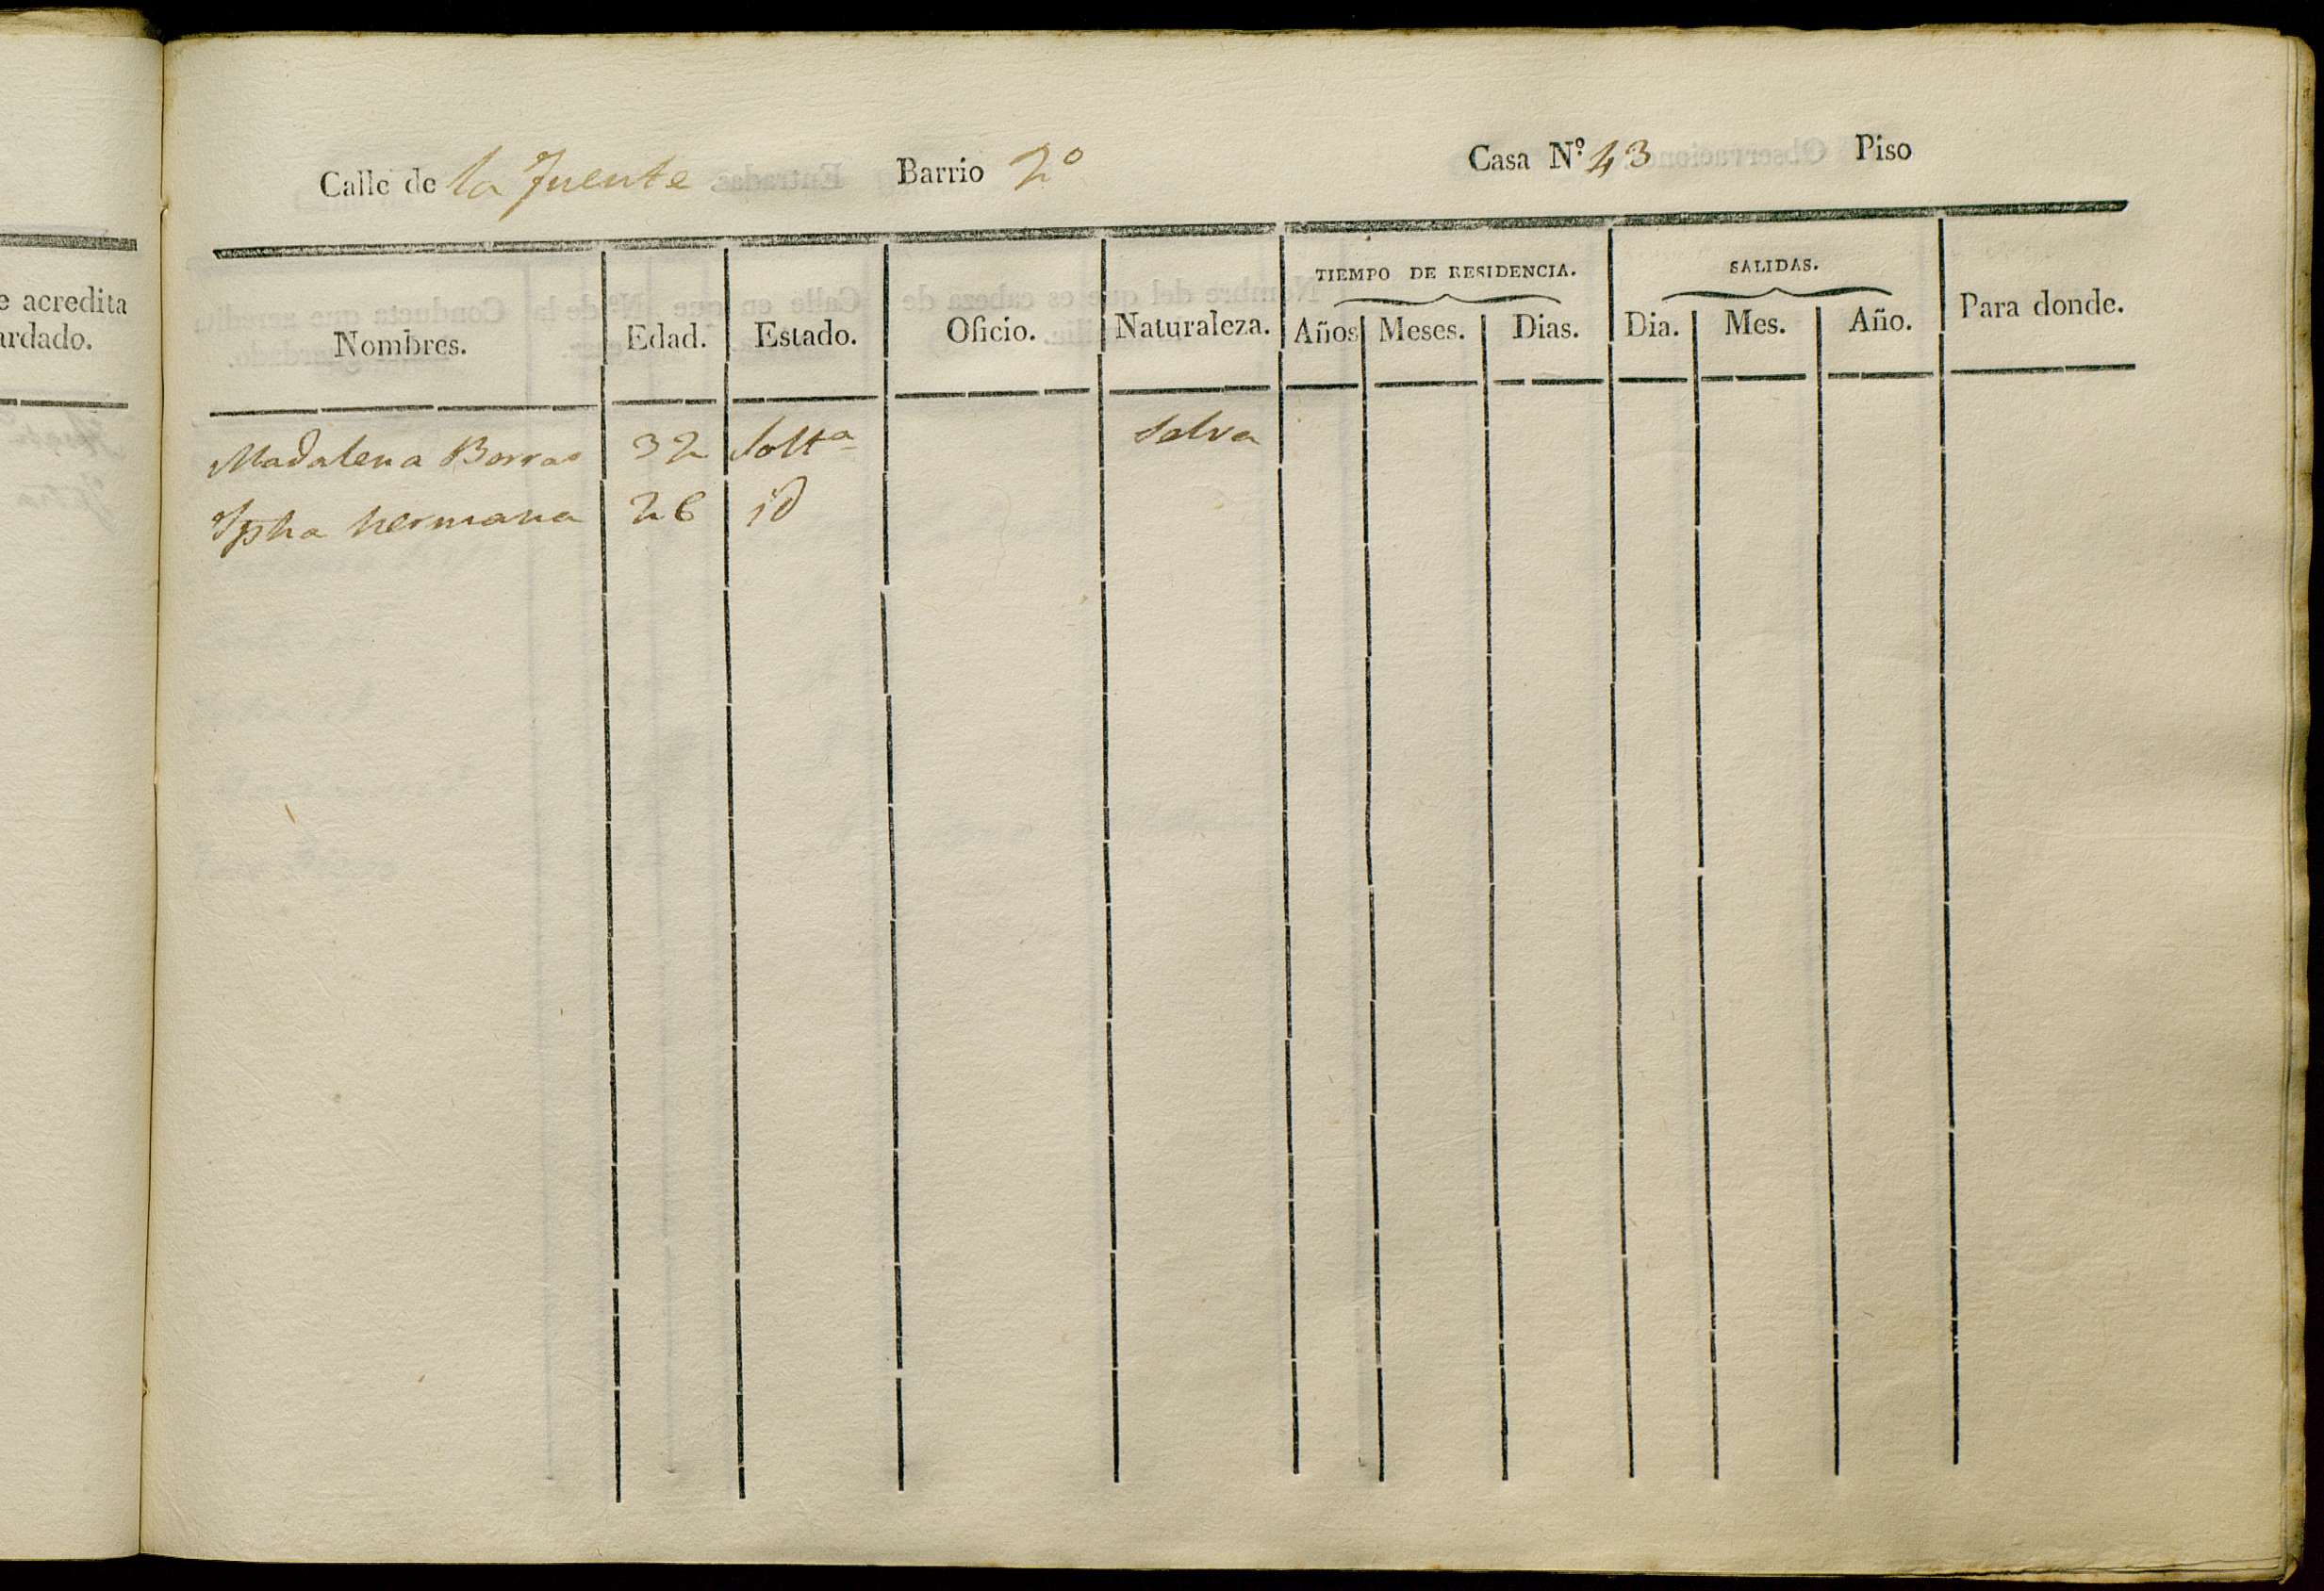 e acredita
ardado.
Calle de la Fuente Barrio 2º Casa Nº 43 Piso
TIEMPO DE RESIDENCIA. SALIDAS.
Nombres. Edad. Estado. Oficio. Naturaleza. Años Meses. Dias. Dia. Mes. Año. Para donde.
Madalena Borras 32 Soltª Selva
Jpha hermana 26 id